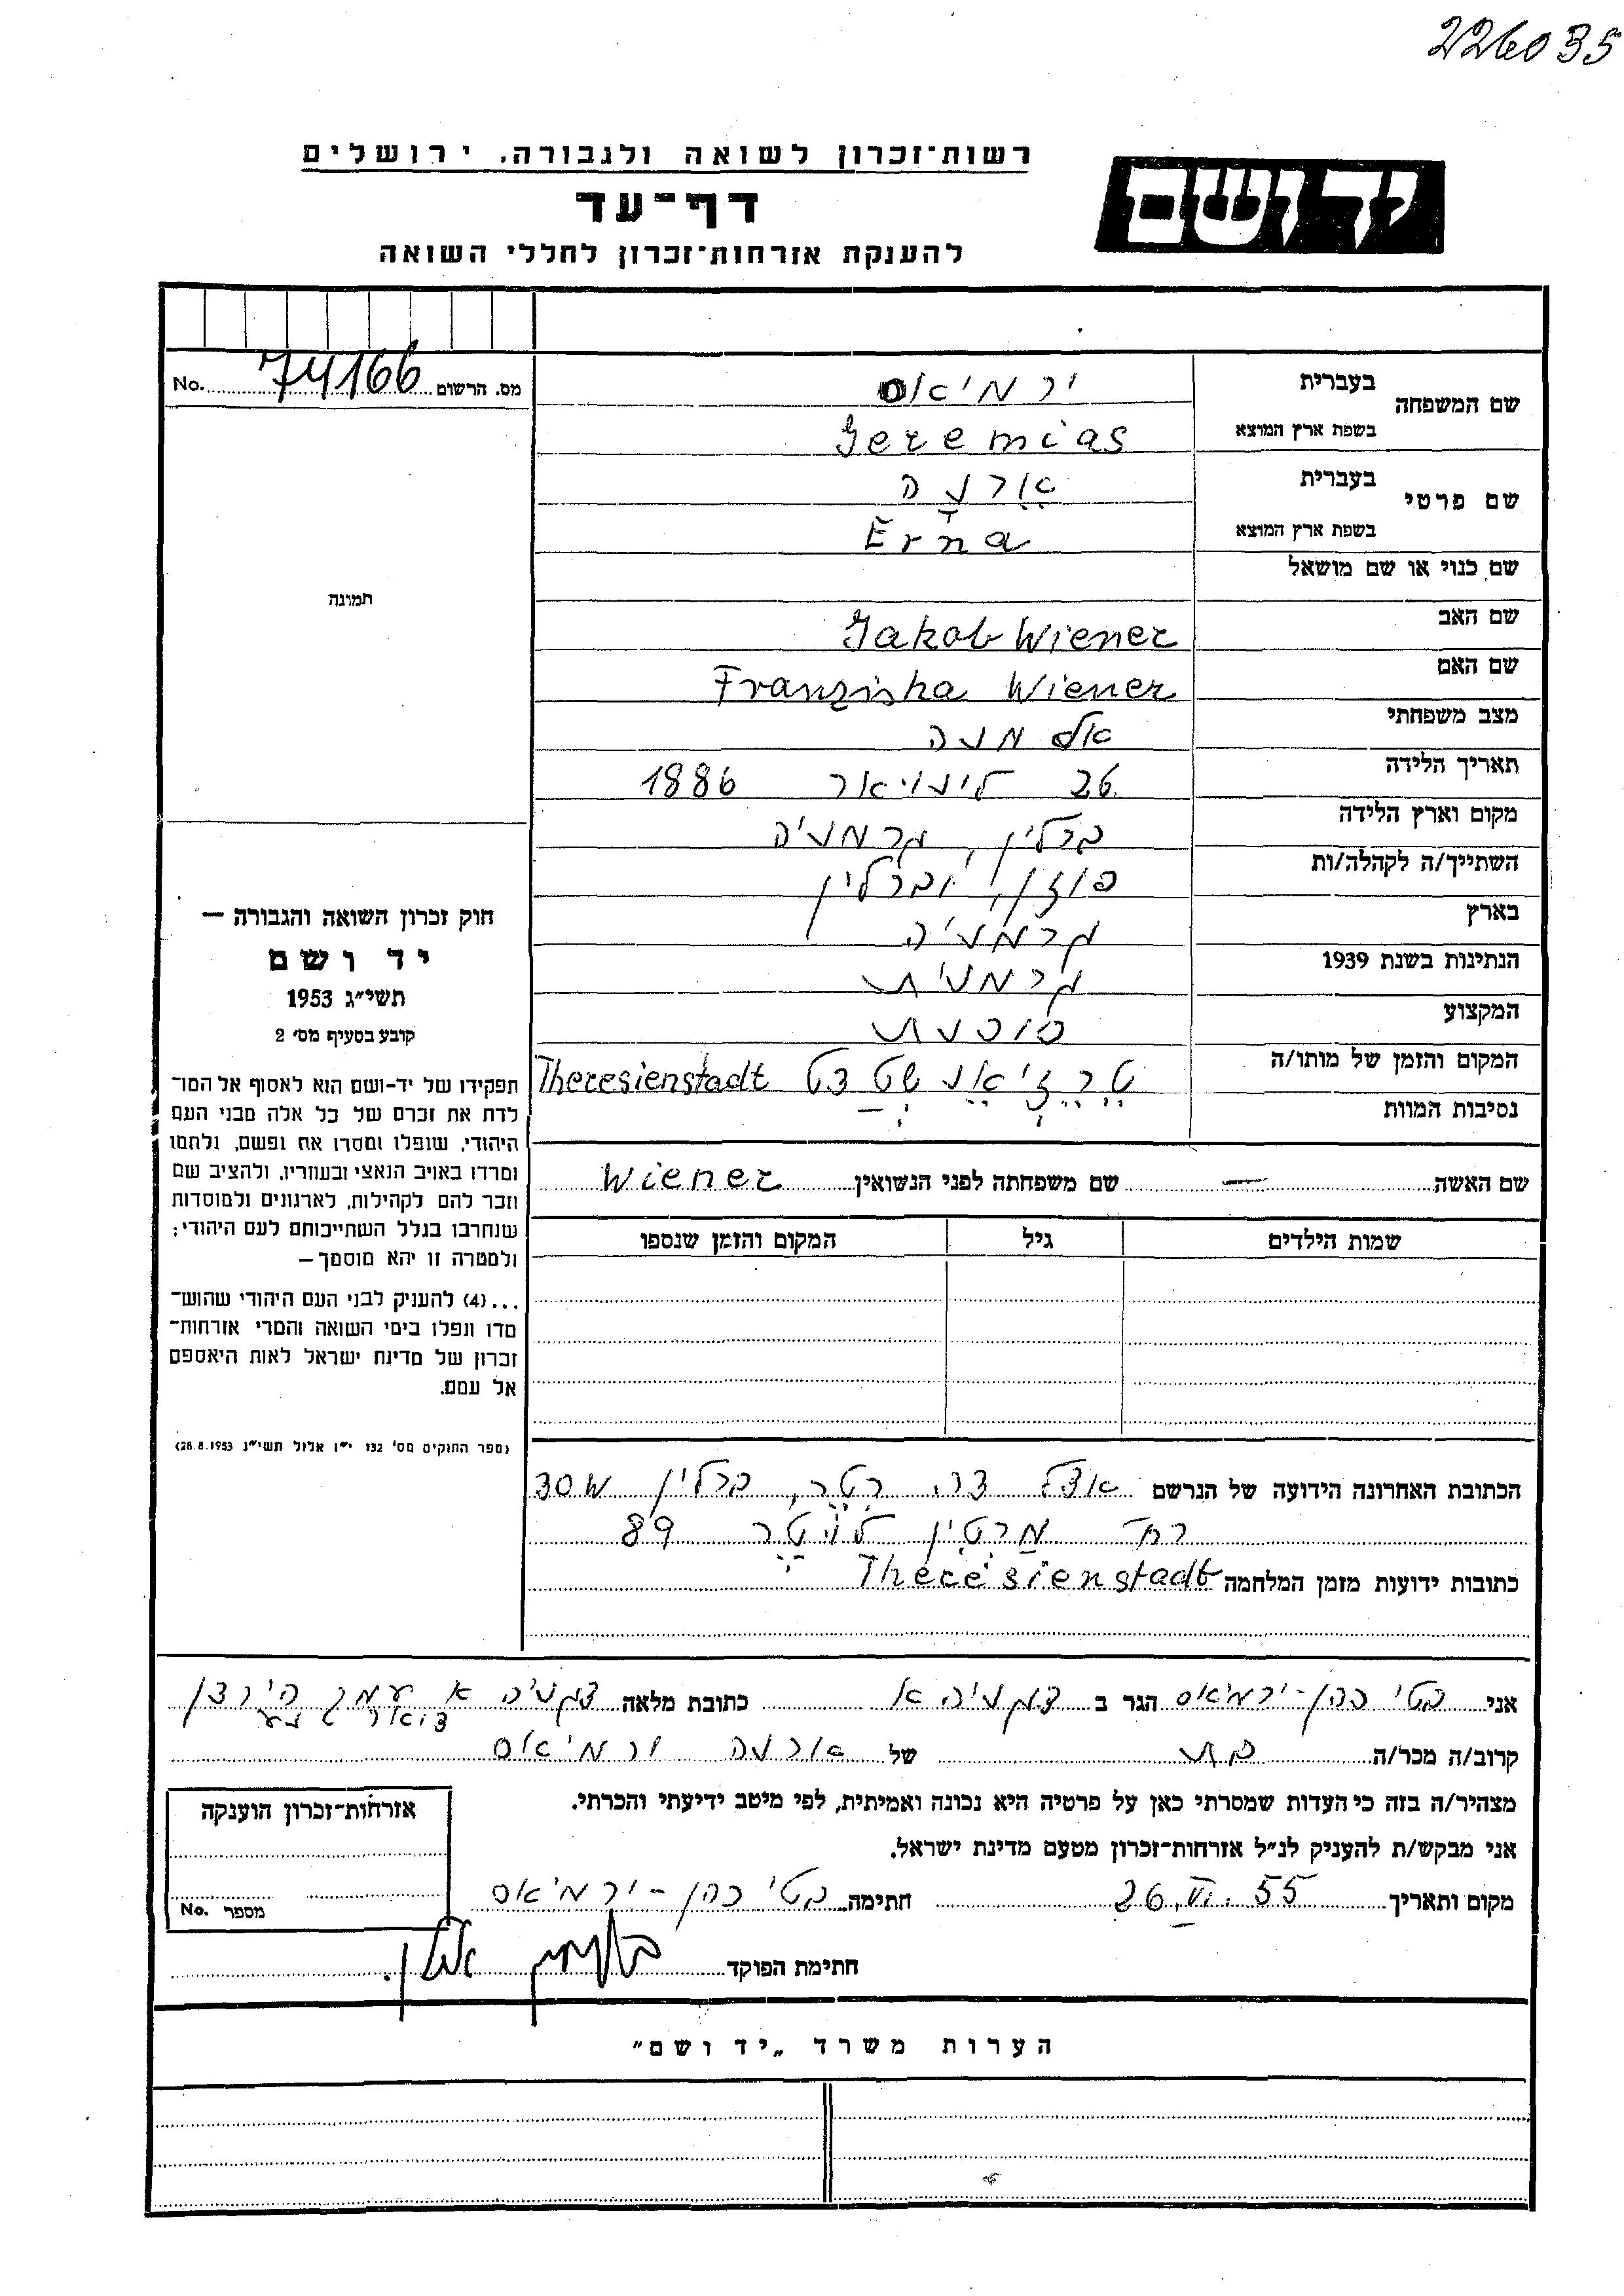 226035
רשות־זכרון לשואה ולגבורה, ירושלים
יד ושם
דף־עד
להענקת אזרחות־זכרון לחללי השואה
מס. הרשום 74166 No.
תמונה
שם המשפחה בעברית ירמיאס
בשפת ארץ המוצא Jeremias
שם פרטי בעברית ארנה
בשפת ארץ המוצא Erna
שם כנוי או שם מושאל
שם האב Jakob Wiener
שם האם Franziska Wiener
מצב משפחתי אלמנה
תאריך הלידה 26 לינויאר 1886
מקום וארץ הלידה ברלין, גרמניה
השתייך/ה לקהלה/ות פוזן, וברלין
בארץ גרמניה
הנתינות בשנת 1939 גרמנית
המקצוע
המקום והזמן של מותו/ה טרזיאנשטדט Theresienstadt
נסיבות המוות
שם האשה — שם משפחתה לפני הנשואין Wiener
שמות הילדים גיל המקום והזמן שנספו
חוק זכרון השואה והגבורה –
יד ושם
תשי״ג 1953
קובע בסעיף מס׳ 2
תפקידו של יד-ושם הוא לאסוף אל המו־
לדת את זכרם של כל אלה מבני העם
היהודי, שנפלו ומסרו את נפשם, נלחמו
ומרדו באויב הנאצי ובעוזריו, ולהציב שם
וזכר להם לקהילות, לארגונים ולמוסדות
שנחרבו בגלל השתייכותם לעם היהודי;
ולמטרה זו יהא מוסמך –
...(4) להעניק לבני העם היהודי שהוש־
מדו ונפלו בימי השואה והמרי אזרחות־
זכרון של מדינת ישראל לאות היאספם
אל עמם.
(ספר החוקים מס׳ 132 י״ז אלול תשי״ג 28.8.1953)
הכתובת האחרונה הידועה של הנרשם אצל רטר, ברלין W30
רח׳ מרטין לוטר 89
כתובות ידועות מזמן המלחמה Theresienstadt
אני בטי כהן-ירמיאס הגר ב דגניה א כתובת מלאה דגניה א עמק הירדן
דואר נע
קרוב/ה מכר/ה בת של ארנה ירמיאס
מצהיר/ה בזה כי העדות שמסרתי כאן על פרטיה היא נכונה ואמיתית, לפי מיטב ידיעתי והכרתי.
אני מבקש/ת להעניק לנ״ל אזרחות־זכרון מטעם מדינת ישראל.
מקום ותאריך 26.VI.55 חתימה בטי כהן-ירמיאס
חתימת הפוקד
אזרחות־זכרון הוענקה
מספר No.
הערות משרד „יד ושם״